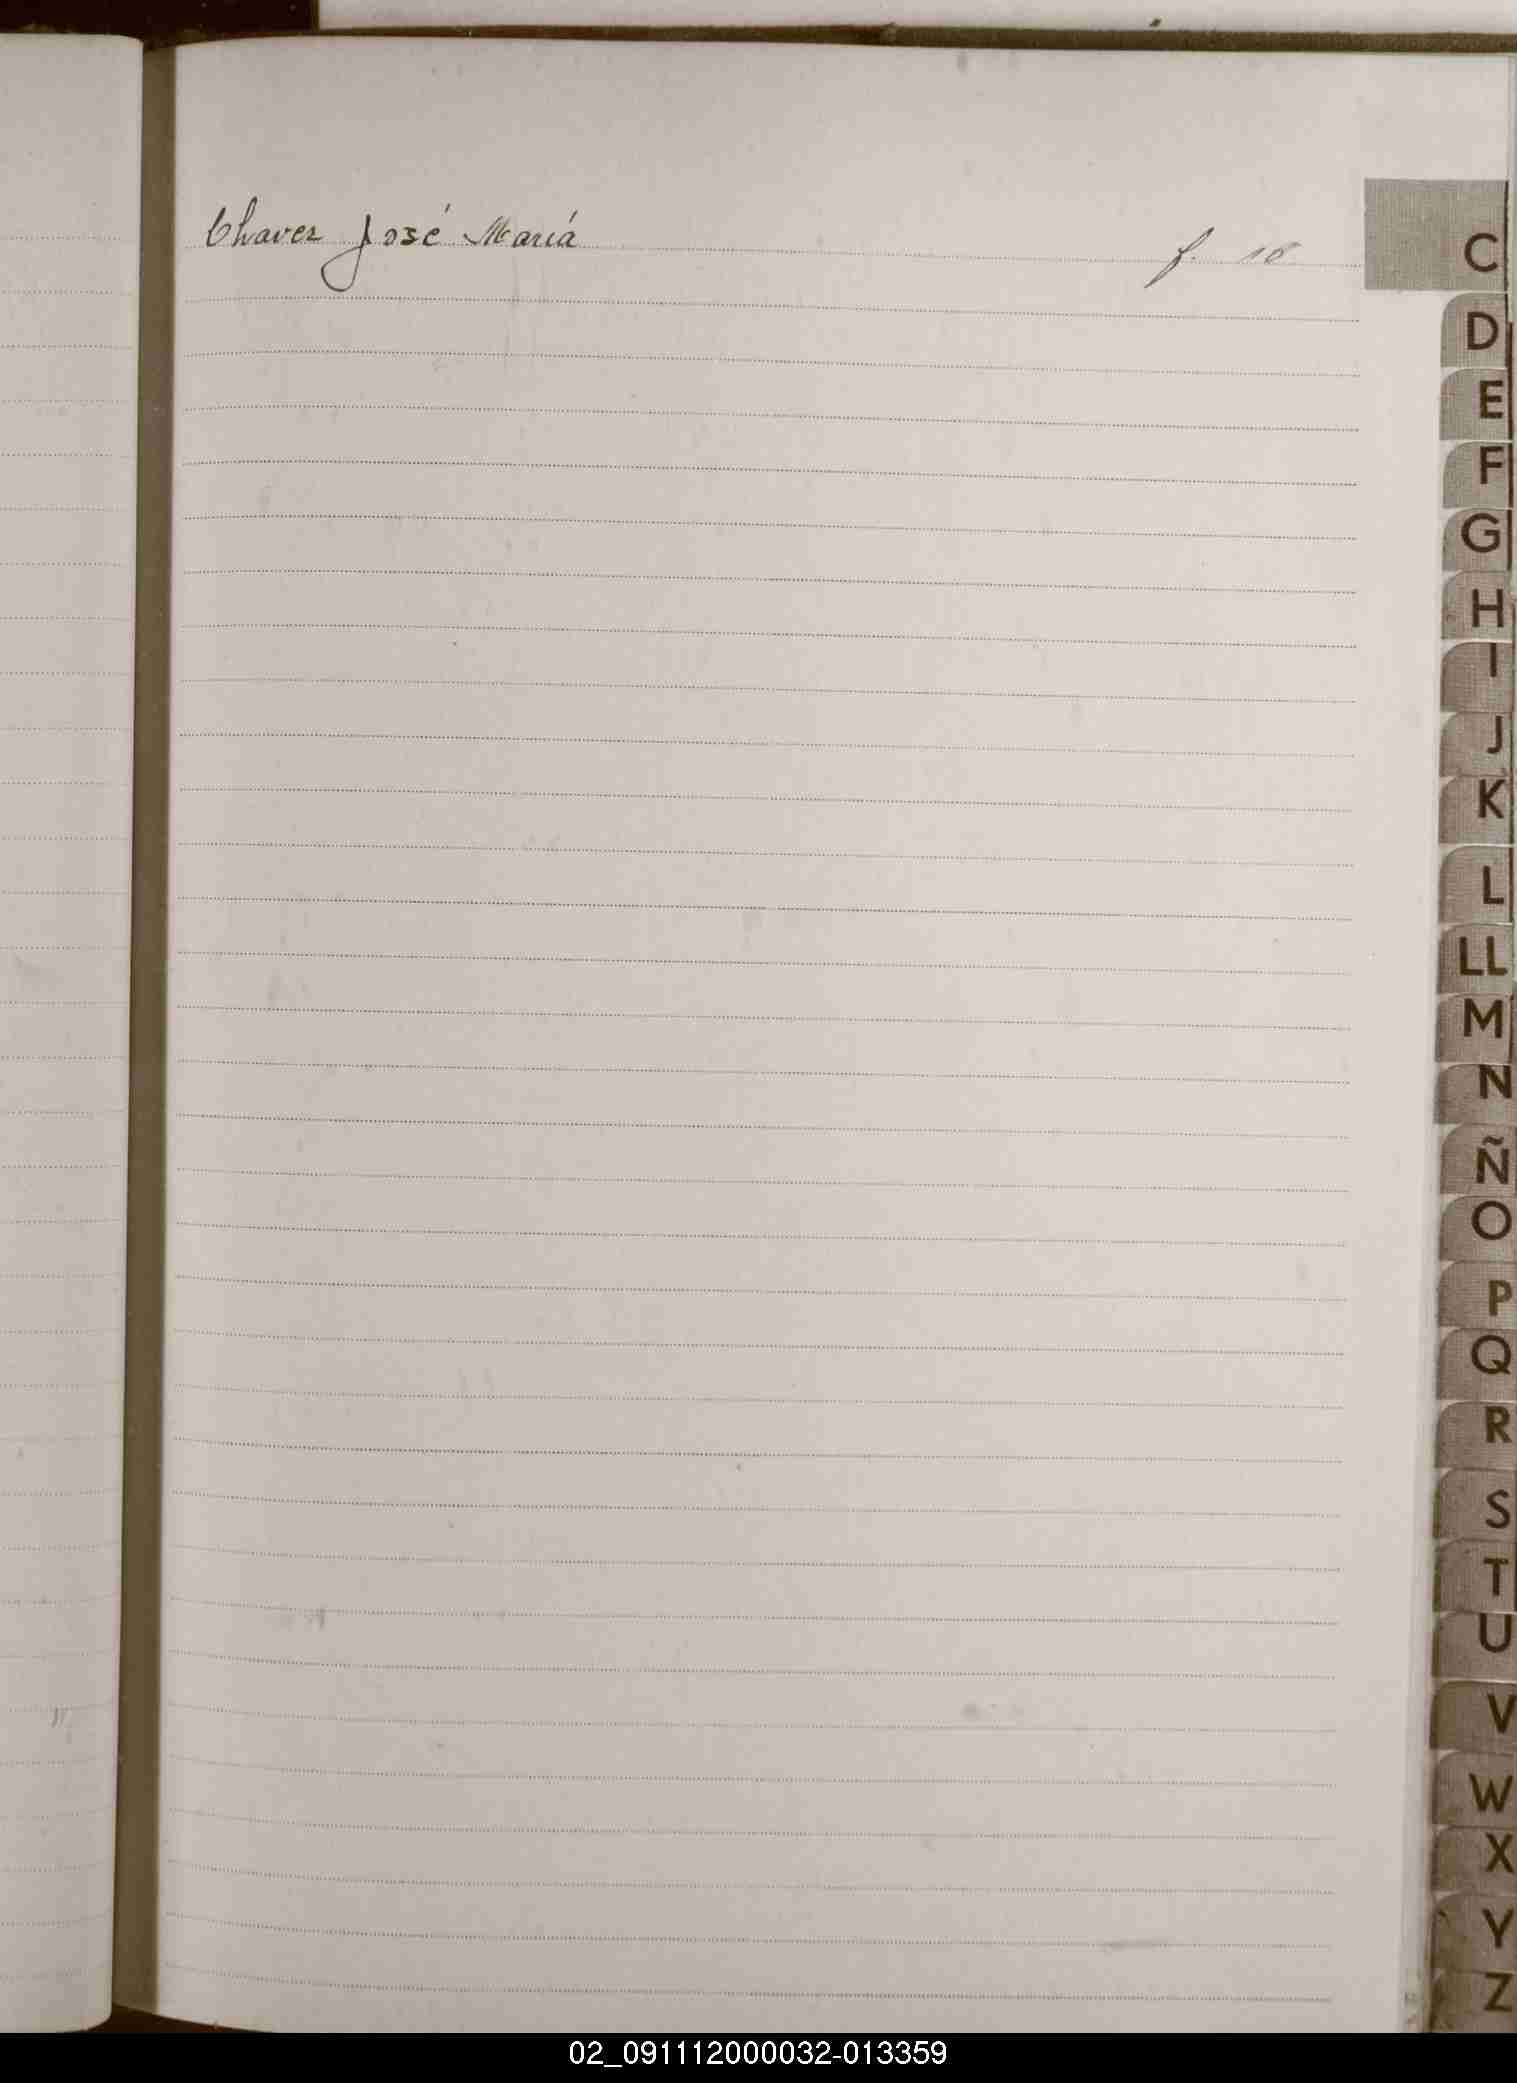 Chavez José María f. 10
C
D
E
F
G
H
I
J
K
L
LL
M
N
Ñ
O
P
Q
R
S
T
U
V
W
X
Y
Z
02_091112000032-013359